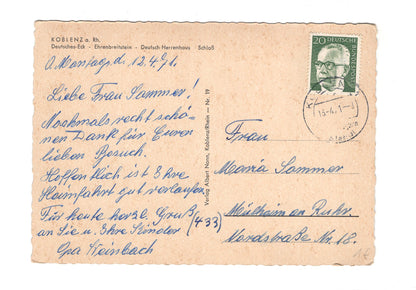 KOBLENZ a. Rh.
Deutsches-Eck - Ehrenbreitstein - Deutsch-Herrenhaus - Schloß
Montags, d. 12.4.71.
Liebe Frau Sommer!
Nochmals recht schö-
nen Dank für Euren
lieben Besuch.
Hoffentlich ist Ihre
Heimfahrt gut verlaufen
Für heute herzl. Gruß
an Sie u. Ihre Kinder
Opa Steinbach
Verlag Albert Nonn, Koblenz/Rhein - Nr. 19
20 DEUTSCHE BUNDESPOST
13-4.
Frau
Maria Sommer
(433)
Mülheim an Ruhr.
Nordstraße Nr. 18.